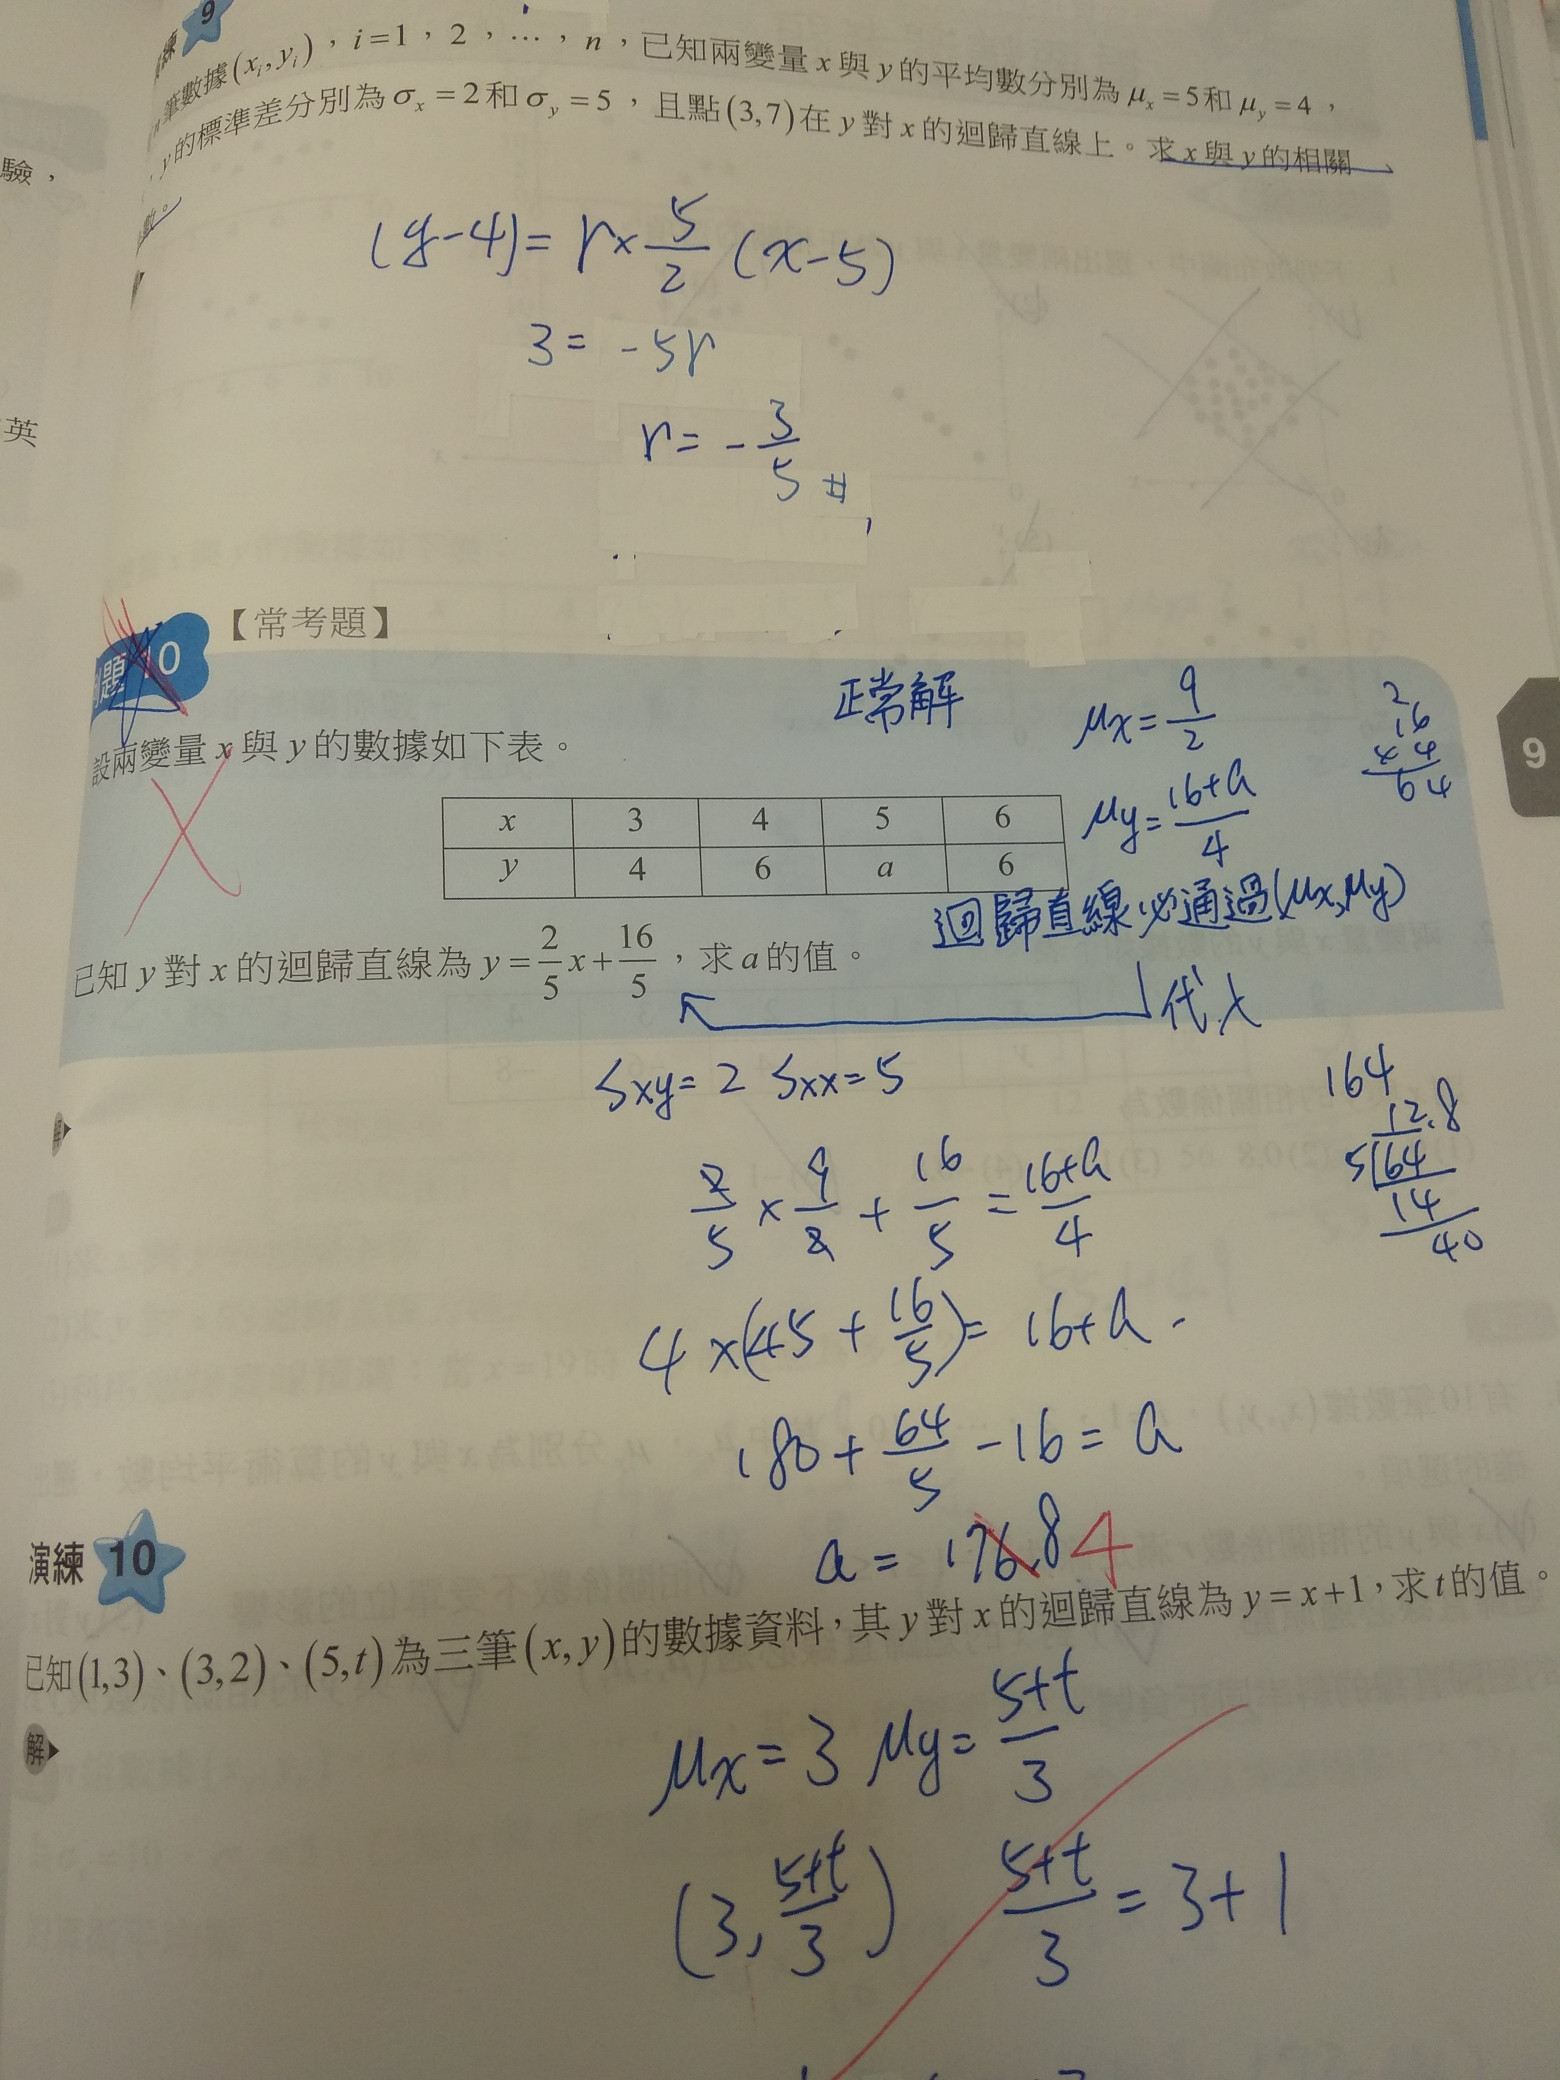 9
筆數據(xᵢ, yᵢ)，i=1，2，…，n，已知兩變量x與y的平均數分別為μₓ=5和μᵧ=4，
y的標準差分別為σₓ=2和σᵧ=5，且點(3,7)在y對x的迴歸直線上。求x與y的相關
數。
驗，
英
(y-4)=r×5/2(x-5)
3=-5r
r=-3/5 #
題10【常考題】
設兩變量x與y的數據如下表。
正常解
μx=9/2
μy=16+a/4
2
16
×4
64
9
x 3 4 5 6
y 4 6 a 6
迴歸直線必通過(μx,μy)
已知y對x的迴歸直線為y=2/5x+16/5，求a的值。
代入
Sxy=2 Sxx=5
2/5×9/2+16/5=16+a/4
4×(45+16/5)=16+a
180+64/5-16=a
a=176.8 4
164
12.8
5 64
14
40
演練 10
已知(1,3)、(3,2)、(5,t)為三筆(x,y)的數據資料，其y對x的迴歸直線為y=x+1，求t的值。
解
μx=3 μy=5+t/3
(3,5+t/3) 5+t/3=3+1